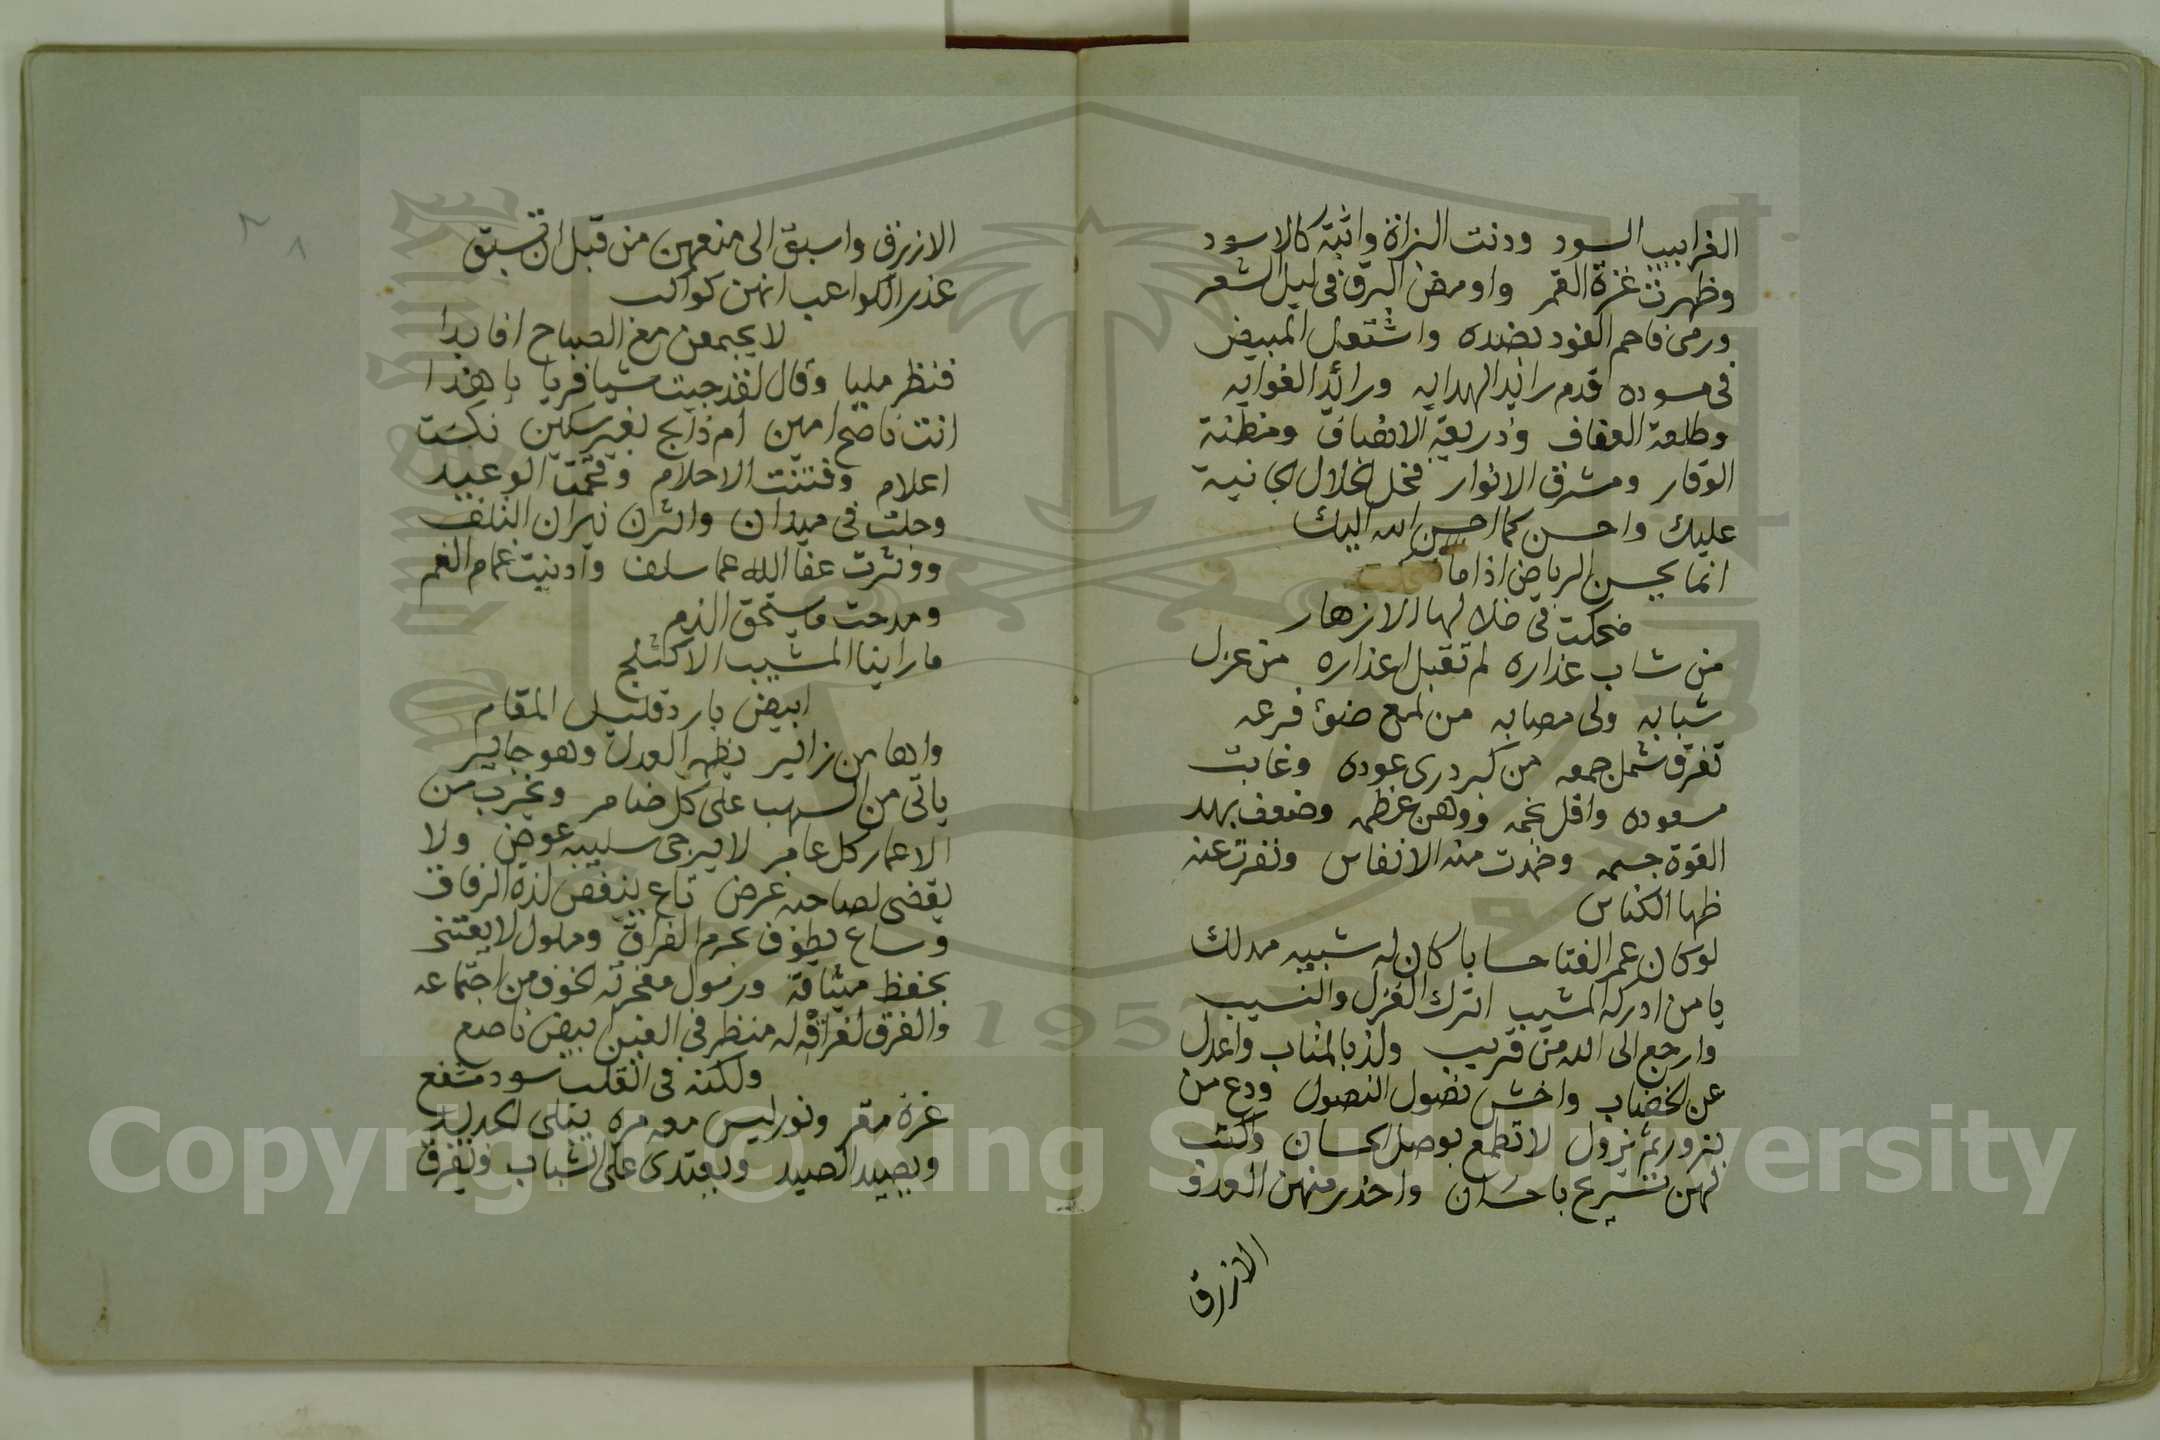 الغرابيب السود ودنت البزاة واثبة كالاسود
وظهرت غرة القمر واومض البرق في ليل الشعر
ورمى فاحم الفود بضده واشتعل المبيض
في مسوده قدم رائد الهدايه ورائد الغوايه
وطلعة العفاف وذريعة الانصاف ومظنة
الوقار ومشرق الانوار فخل الخلال الجانية
عليك واحسن كما احسن الله اليك
انما يحسن الرياض اذا ما
ضحكت في خلالها الازهار
من شاب عذاره لم تقبل اعذاره من عزل
شبابه ولى مصابه من لمع ضوء فرعه
تفرق شمل جمعه من كبر ذوى عوده وغابت
سعوده وافل نجمه ووهن عظمه وضعف بعد
القوة جسمه وخمدت منه الانفاس ونفرت عنه
ظبا الكناس
لو كان عمر الفتا حسابا كان له شيبه مدلك
يا من ادركه المشيب اترك الغزل والنسيب
وارجع الى الله من قريب ولذ بالمتاب واعدل
عن الخضاب واخش نصول النصول ودع من
يزور ثم يزول لا تطمع بوصل الحسان واكتب
لهن تسريح باحسان واحذر منهن العدو
الازرق
الازرق واسبق الى منعهن من قبل ان تسبق
عذر الكواعب انهن كواكب
لا يجتمعن مع الصباح اذا بدا
فنظر مليا وقال لقد جيت شيا فريا يا هذا
انت ناصح امين ام ذابح بغير سكين نكست
اعلام وفتنت الاحلام وقحمت الوعيد
وجلت في ميدان واثرت نيران التلف
ووترت عفا الله عما سلف وادنيت غمام الغم
ومدحت مستحق الذم
ما راينا المشيب الا كثلج
ابيض بارد قليل المقام
واها من زائير يظهر العدل وهو جاير
ياتي من الشهب على كل ضامر ويخرب من
الاعمار كل عامر لا يرجى سليبه عوض ولا
يقضى لصاحبه غرض ناع ينغص لذة الرفاق
وساع يطوف بحرم الفراق وملول لا يعتنى
بحفظ ميثاقه ورسول معجزته لخوف من اجتماعه
والفرق لفراقه له منظر في العين ابيض ناصع
ولكنه في القلب سود مسفع
غرة مقر ونور ليس معه مره يبلى الجديد
ويصيد الصيد ويعتدى على الشباب ويفرق
Copyright © King Saud University
1957